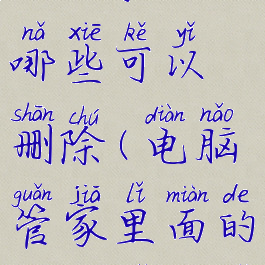 nǎ xiē kě yǐ
哪些可以
shān chú diàn nǎo
删除(电脑
guǎn jiā lǐ miàn de
管家里面的